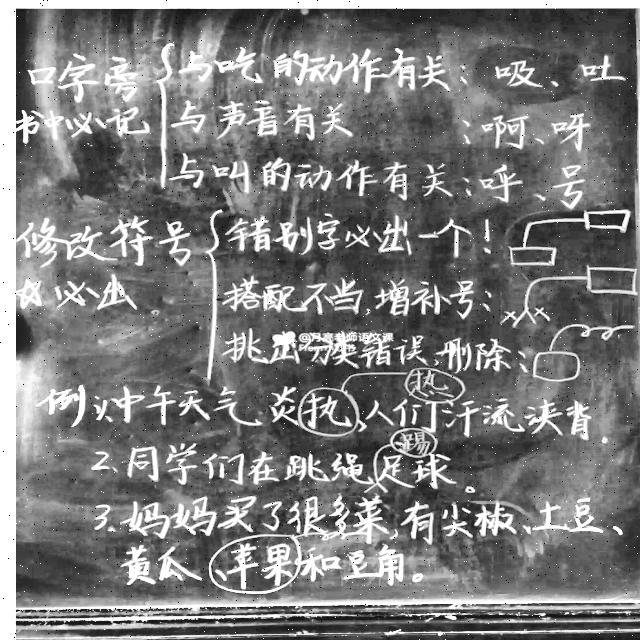 口字旁 与吃的动作有关：吸、吐
书中必记 与声音有关：啊、呀
与叫的动作有关：呼、号
修改符号 错别字必出一个！
必出。 搭配不当，增补号：
挑出另类错误，删除：
@月亮老师语文课
热
例 1、中午天气炎执，人们汗流浃背。
踢
2.同学们在跳绳足球。
3.妈妈买了很多菜，有尖椒、土豆、
黄瓜、苹果和豆角。